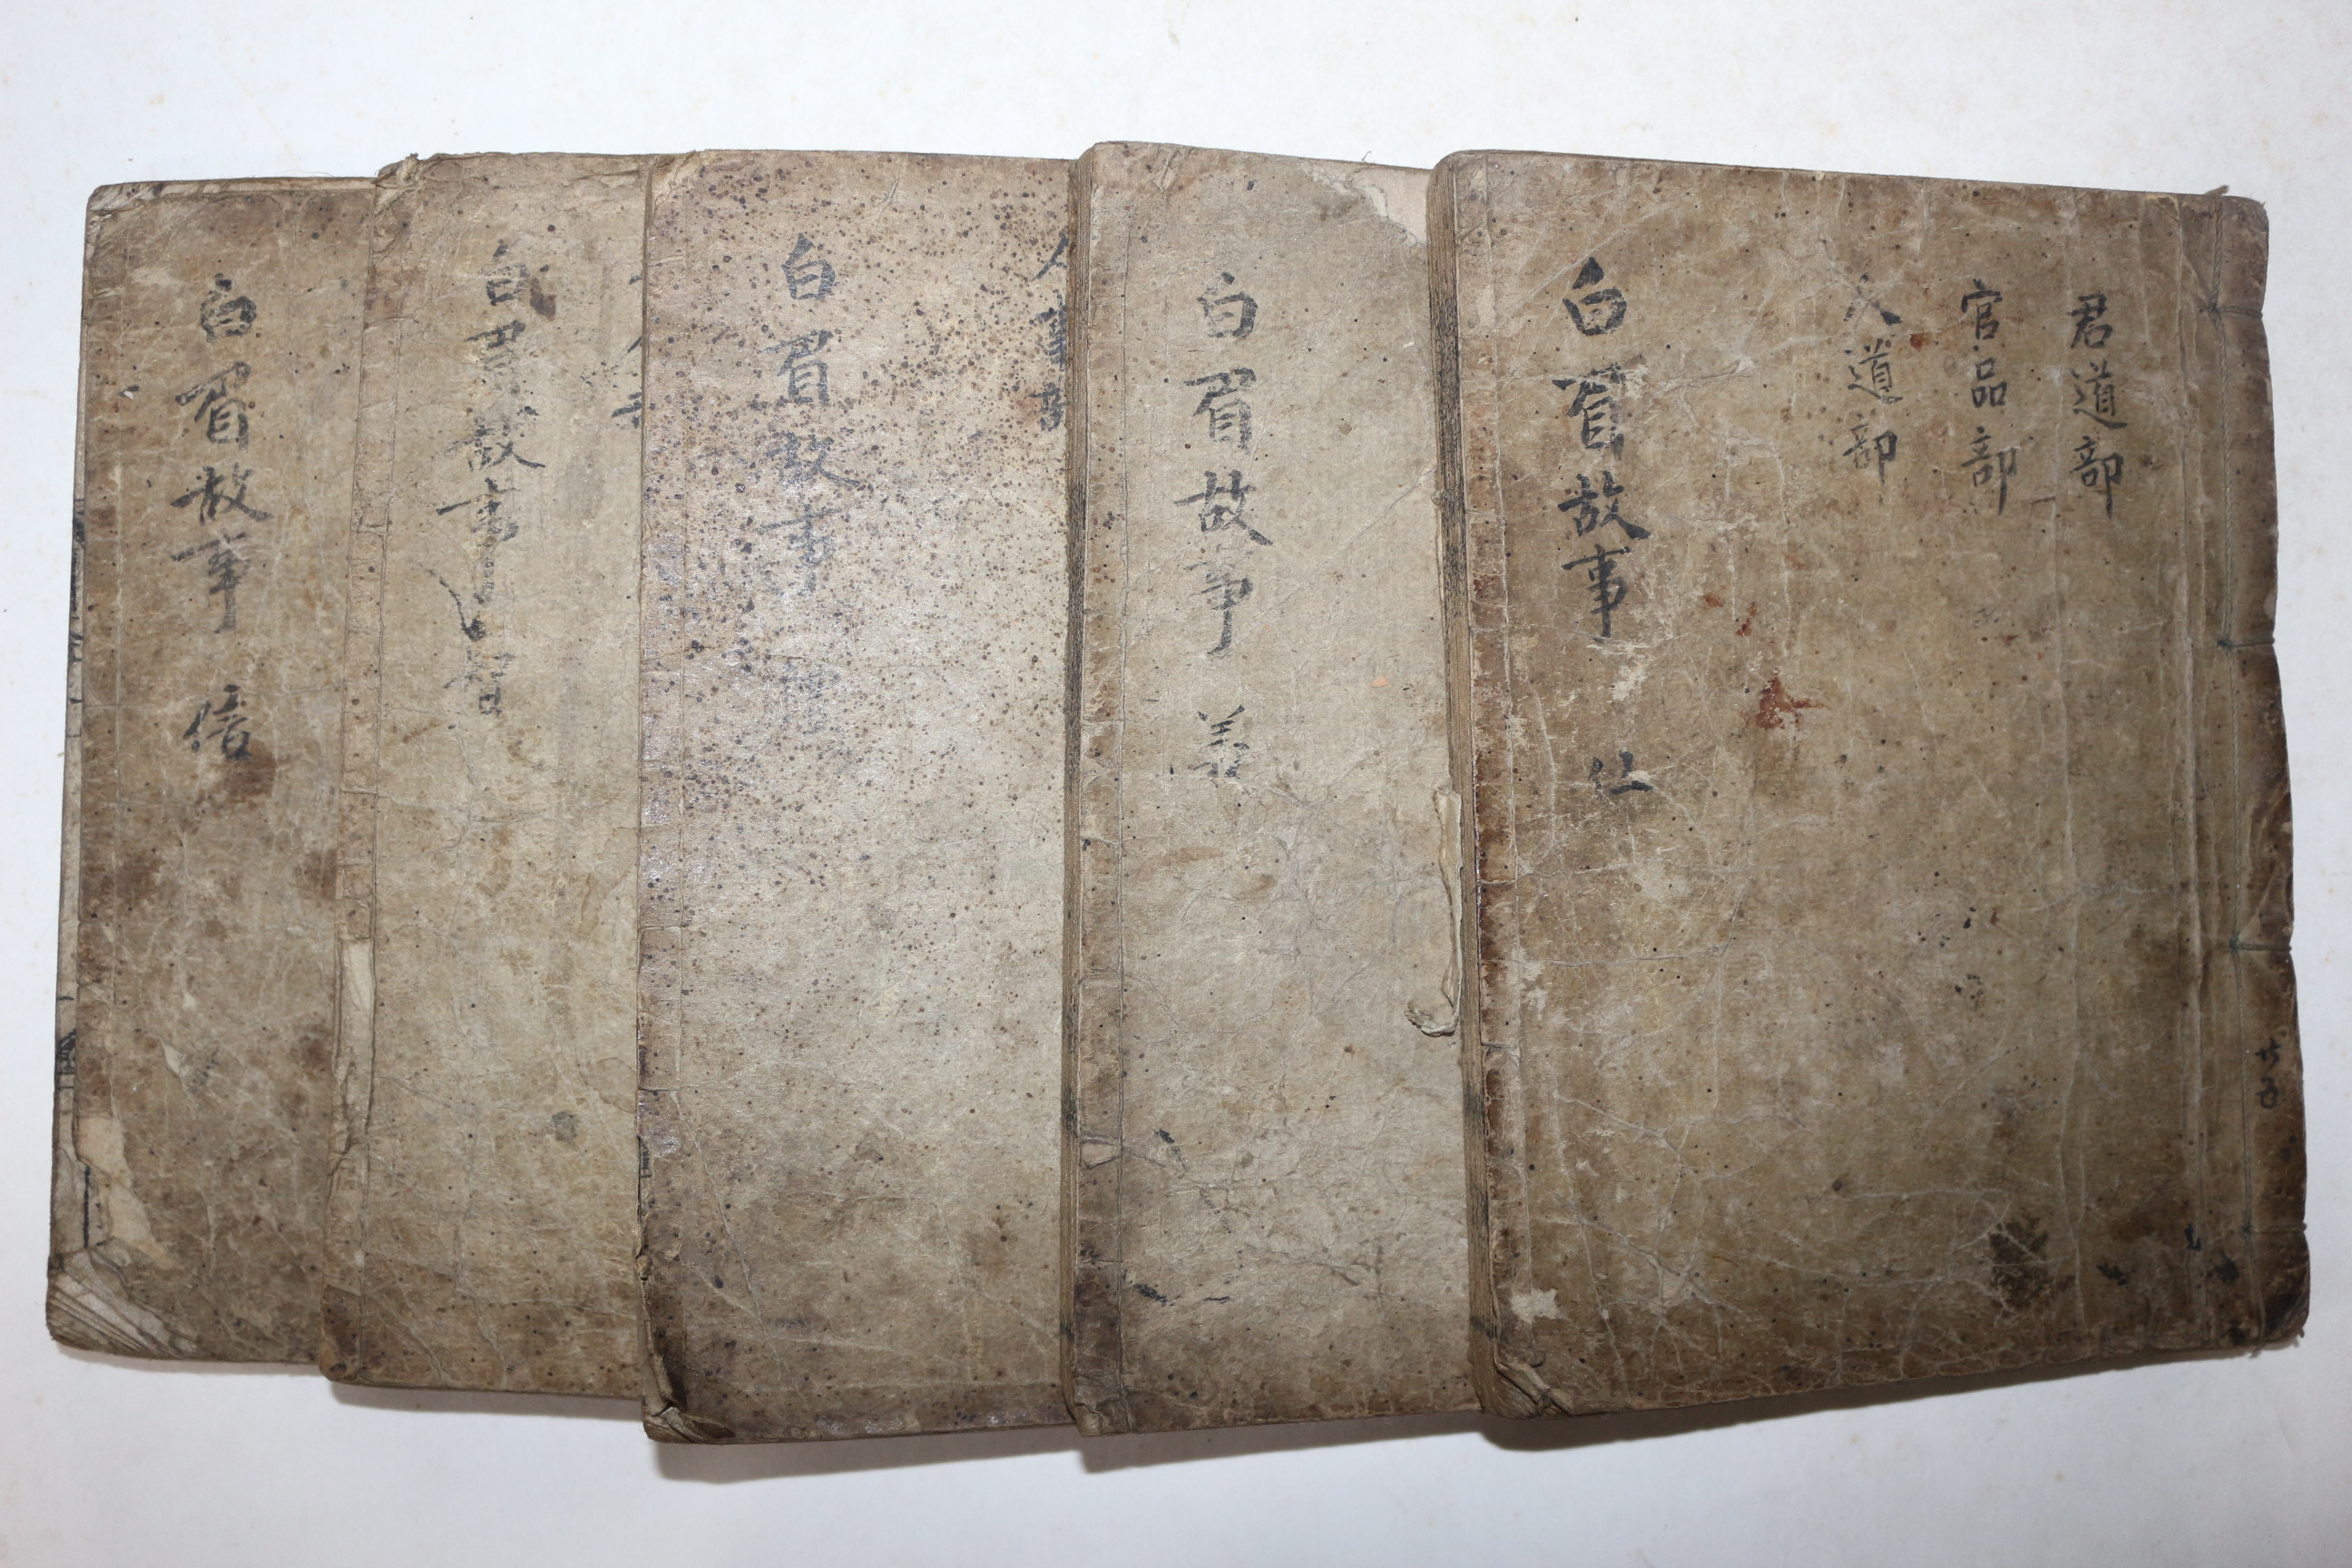 君道部
官品部
人道部
白眉故事 仁
白眉故事 義
人事部
白眉故事 禮
白眉故事 智
白眉故事 信
共五